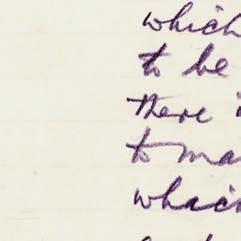 which
to be
there
to ma
which